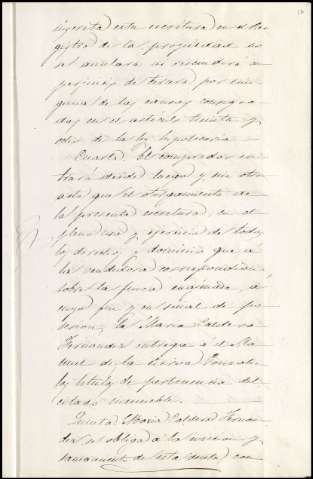 inscrita esta escritura en el Re-
gistro de la propiedad no
se anulará ni rescindirá en
perjuicio de tercero por nin-
guna de las causas consigna-
das en el artículo treinta y
ocho de la ley hipotecaria.
Cuarta. El comprador en-
trará desde luego y sin otro
acto que el otorgamiento de
la presente escritura, en el
pleno uso y ejercicio de todos
los derechos y dominio que a
la vendedora correspondían
sobre la finca enajenada, a
cuyo fin y en señal de po-
sesion, la María Caldera
Fernandez entrega á el Ma-
nuel de la
los títulos de pertenencia del
citado inmueble.
Quinta. María Caldera Fernan-
dez se obliga á la eviccion y
saneamiento de esta venta con